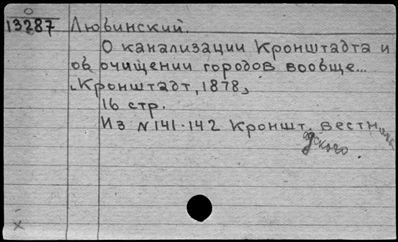 13287 Лювинский.
О канализации Кронштадта и
об очищении городов вообще...
[Кронштадт, 1878]
16 стр.
Из №141-142 Кроншт. вестн